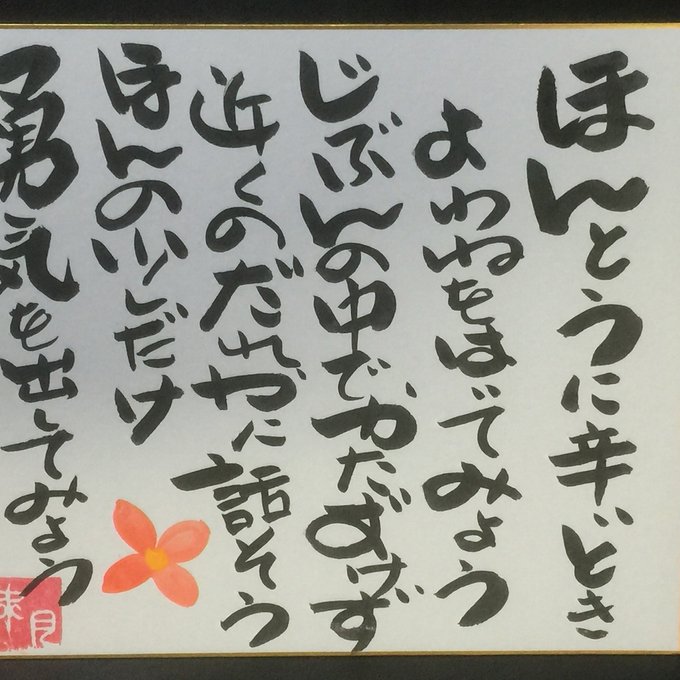 ほんとうに辛いとき
よわねをはいてみよう
じぶんの中でかたずけず
近くのだれかに話そう
ほんの少しだけ
勇気を出してみよう